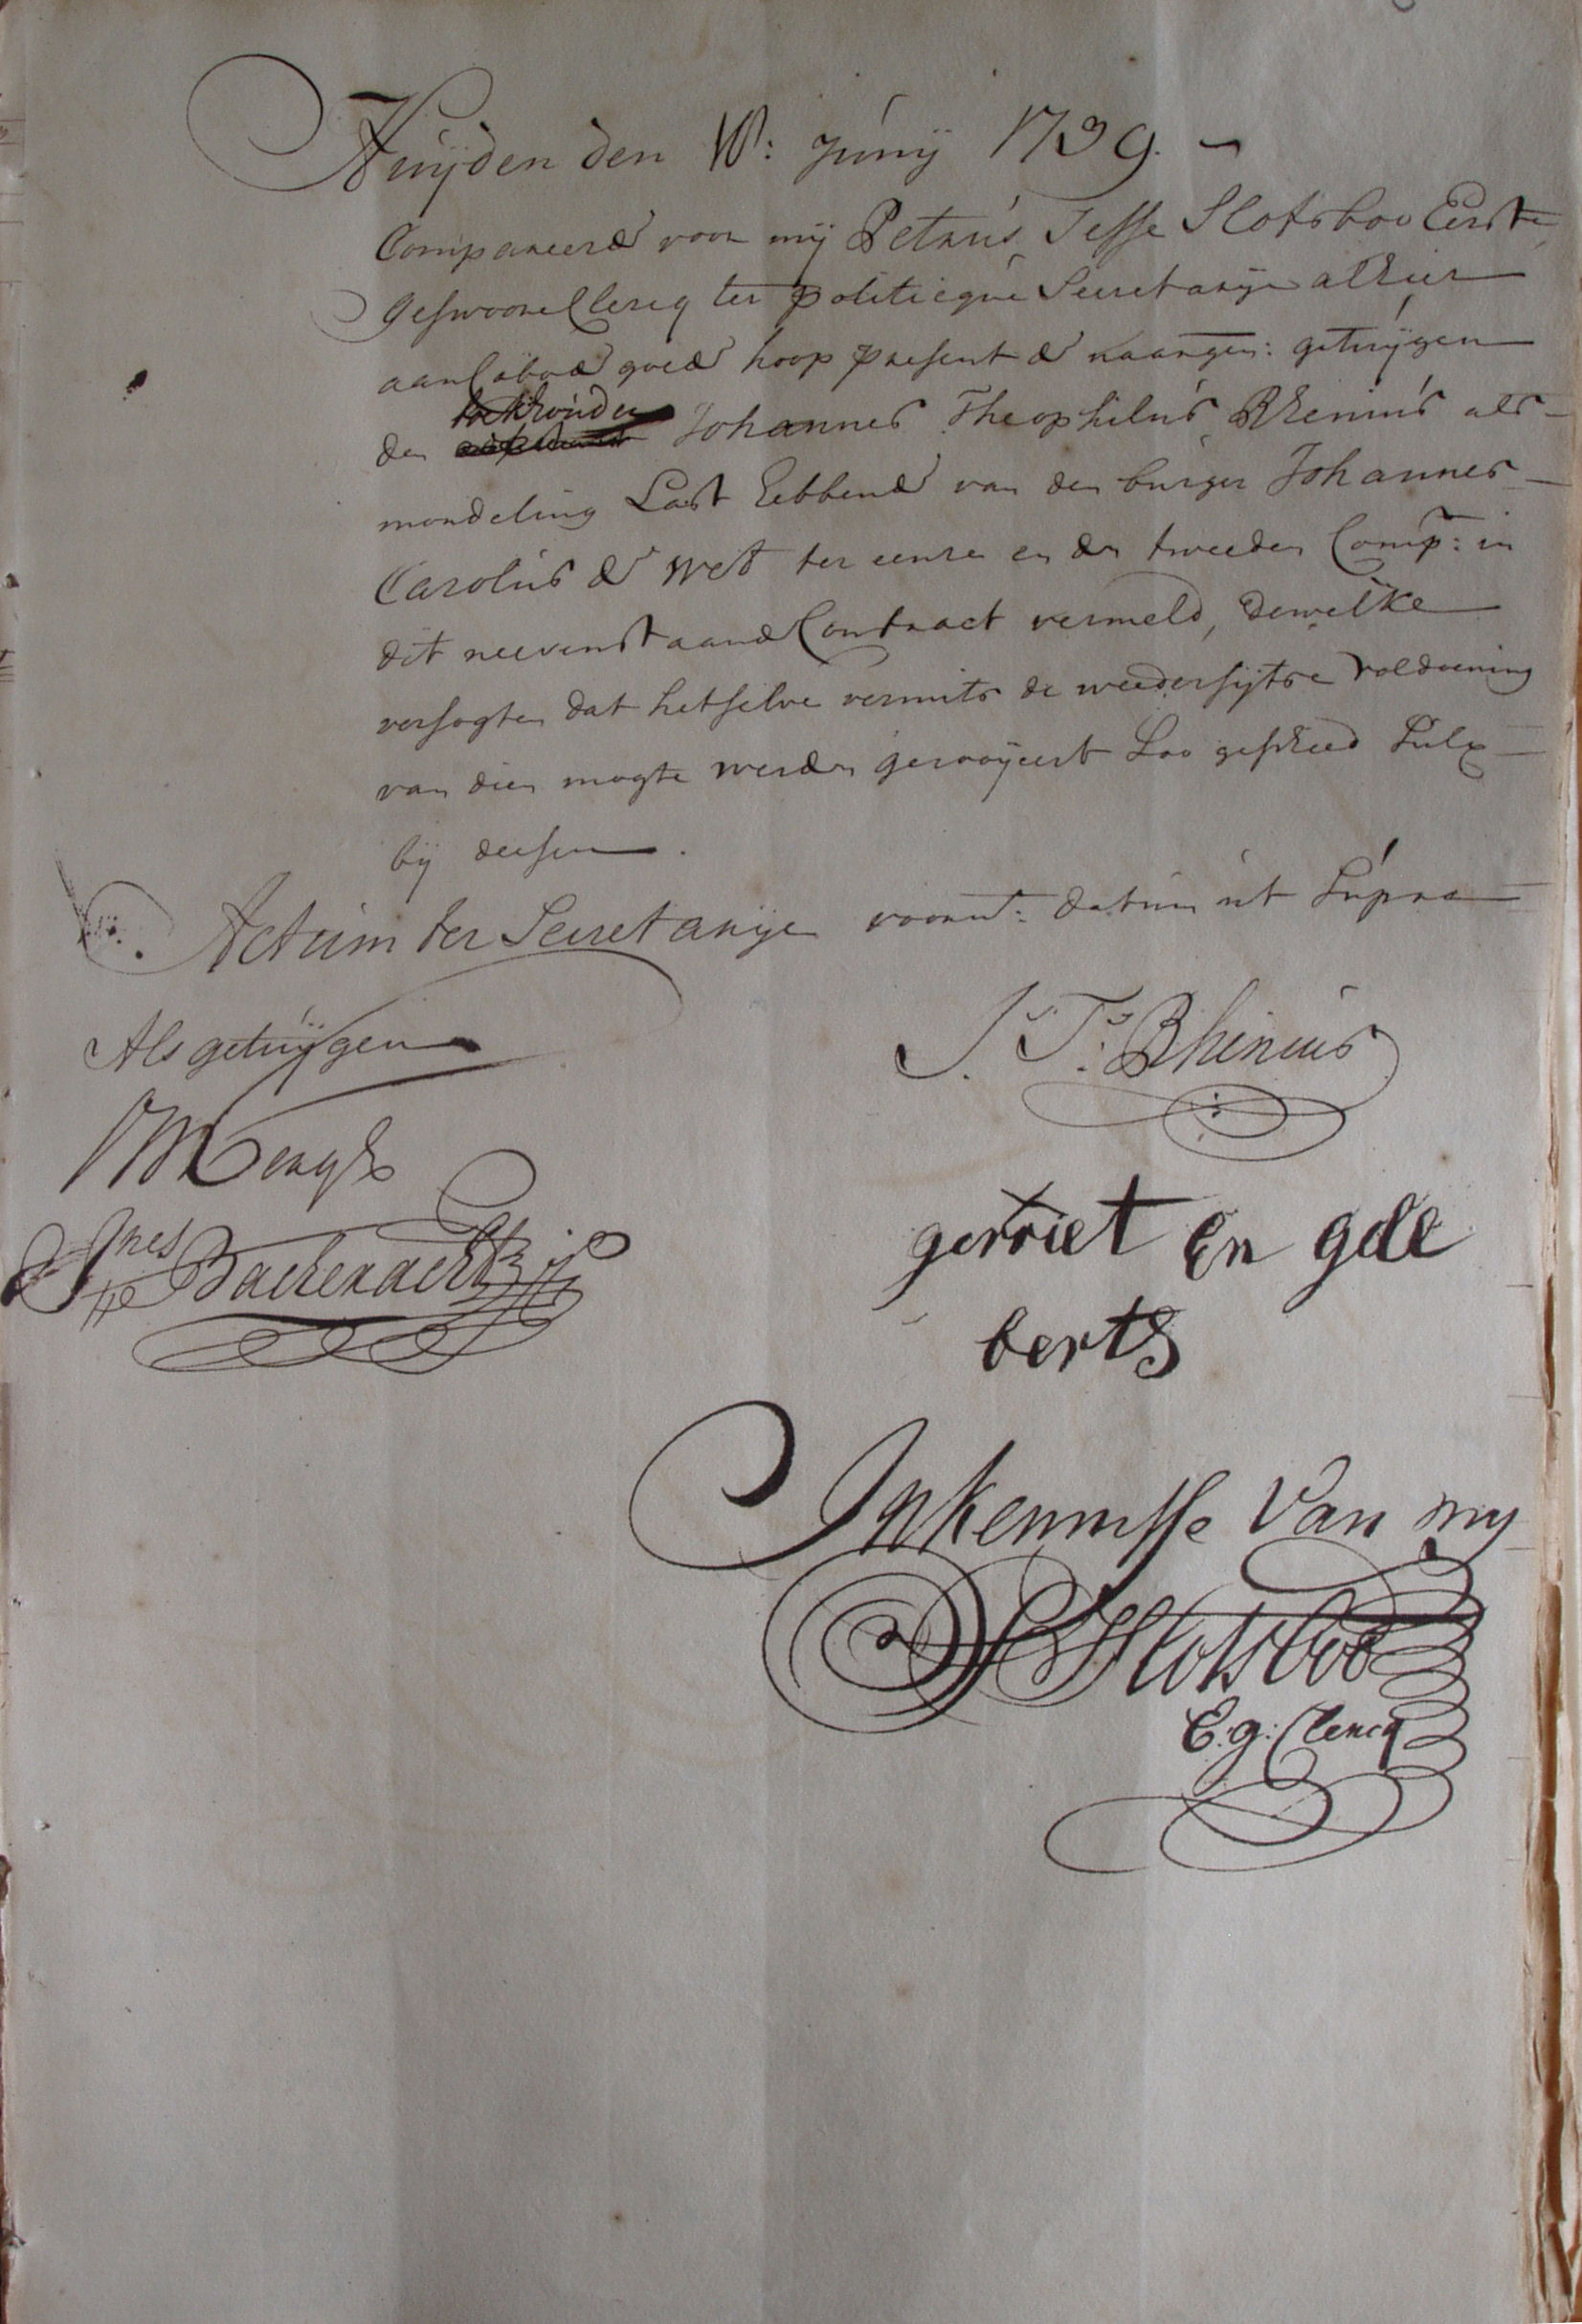 Huijden den 18: Junij 1739. –
Compareerd voor mij Petrus Jesse Slotsboo Eerste
geswoore Clercq ter politicque Secretarije alhier
aan Cabo de goede hoop present de naargen: getuijgen
boekhouder
den Johannes Theophilus Rhenius als
mondeling Last hebbende van den burger Johannes
Carolus de Wet ter eenre en den tweeden Comp: in
dit neevenstaande Contract vermeld, dewelke
versogten dat hetselve vermits de weedersijtse voldoening
van dien mogte werden gerooijeert Soo geschied Sulx
bij deesen.
Actum ter Secretarije voorm: datum ut Supra
Als getuijgen
J: T: Rhenius
gerriet En gel
berts
Inkennisse Van mij
Slotsboo
E: g: Clercq